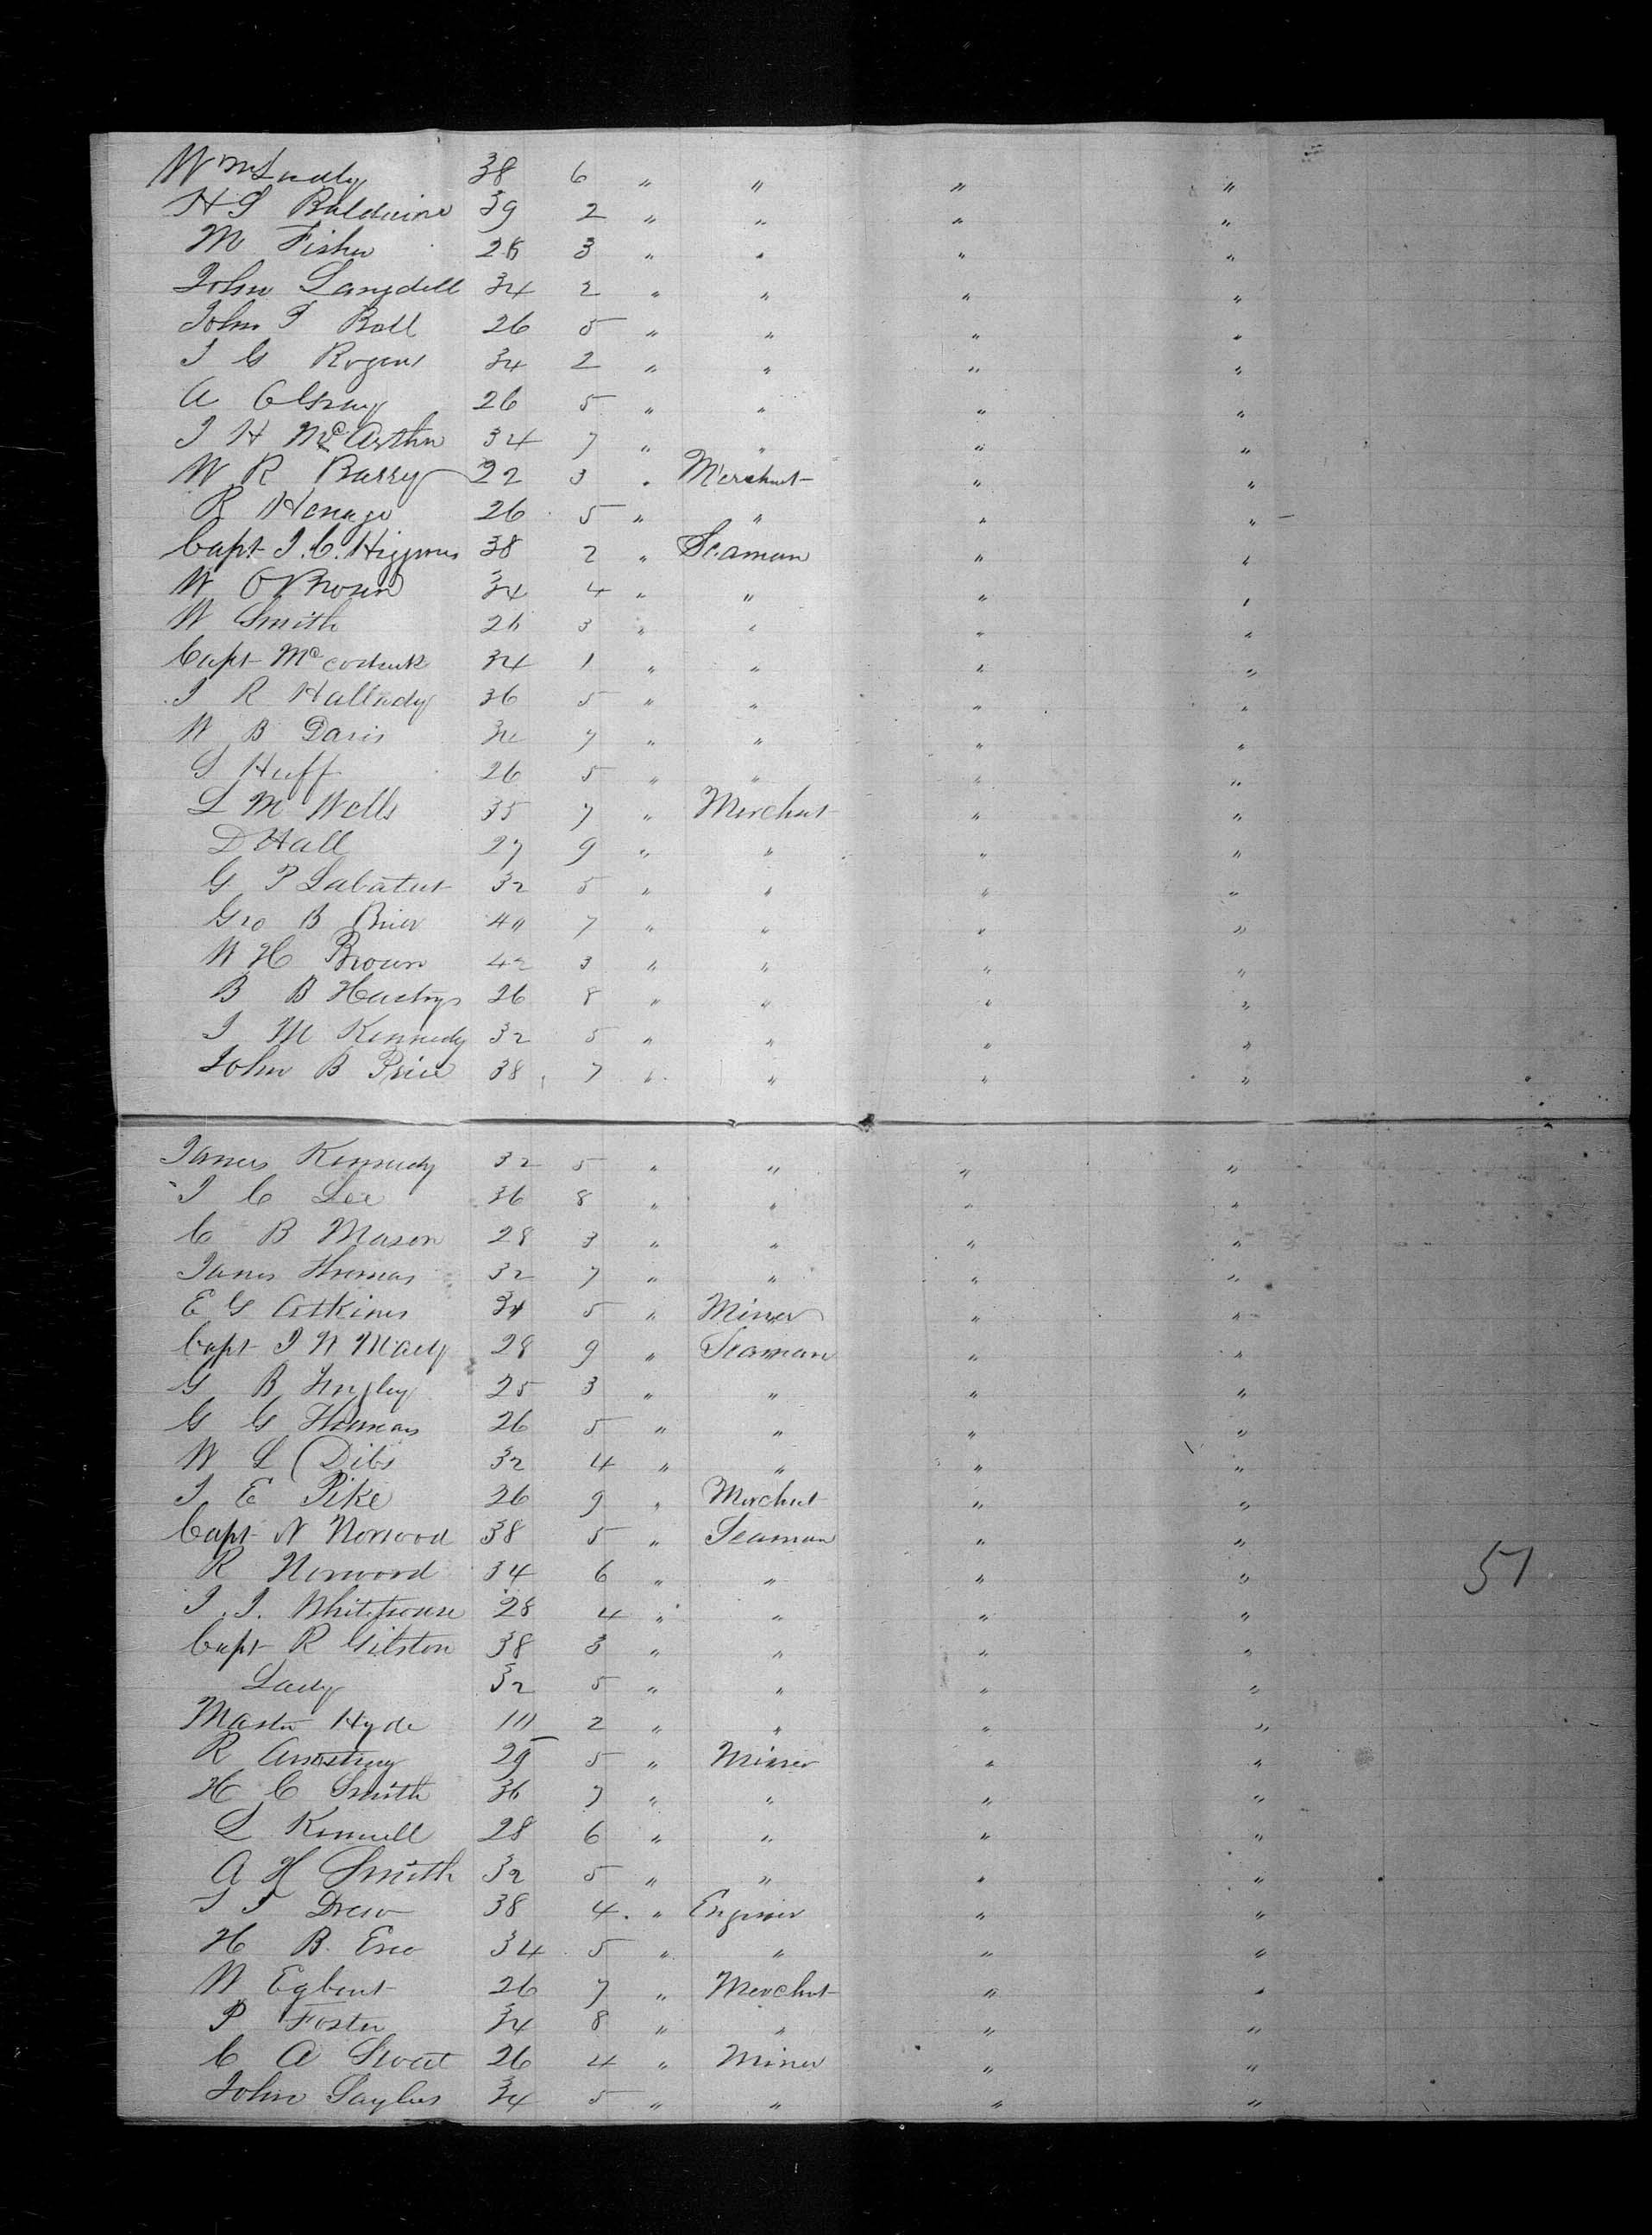 Wm 38 6 " " " "
H S Baldwins 39 2 " " " "
M Fisher 28 3 " " " "
John Langdell 34 2 " " " "
John T Ball 26 5 " " " "
J G Rogers 34 2 " " " "
A 26 5 " " " "
J H McArthur 34 7 " " " "
W R Barry 22 3 " Merchant " "
R Henage 26 5 " " " "
Capt J. C. Higgins 38 2 " Seaman " "
W O Brown 34 4 " " " "
W Smith 26 3 " " " "
Capt 34 1 " " " "
J R Hallady 36 5 " " " "
W B Davis 34 7 " " " "
S Huff 26 5 " " " "
L M Wells 35 7 " Merchant " "
D Hall 27 9 " " " "
G P Labatut 32 5 " " " "
Geo B Brier 40 7 " " " "
W H Brown 42 3 " " " "
B B Hastings 26 8 " " " "
J M Kennedy 32 5 " " " "
John B Price 38 7 " " " "
James Kennedy 32 5 " " " "
J C Lee 36 8 " " " "
C B Mason 28 3 " " " "
James Thomas 32 7 " " " "
E G Atkins 34 5 " Miner " "
Capt J W 28 9 " Seaman " "
G B 25 3 " " " "
G G Thomas 26 5 " " " "
W L Dibs 32 4 " " " "
J E Pike 26 9 " Merchut " "
Capt N Norwood 38 5 " Seaman " "
R Norwood 34 6 " " " "
J. J. Whitehouse 28 4 " " " "
Capt R Gilston 38 3 " " " "
Lady 32 5 " " " "
Master Hyde 10 2 " " " "
R Armstrong 29 5 " Miner " "
H C Smith 36 7 " " " "
L Kimnell 28 6 " " " "
A H Smith 32 5 " " " "
Drew 38 4 " Enginer " "
H B. 34 5 " " " "
W Egbert 26 7 " Merchut " "
P Foster 34 8 " " " "
C A Swett 26 4 " Miner " "
John Saylers 34 5 " " " "
51